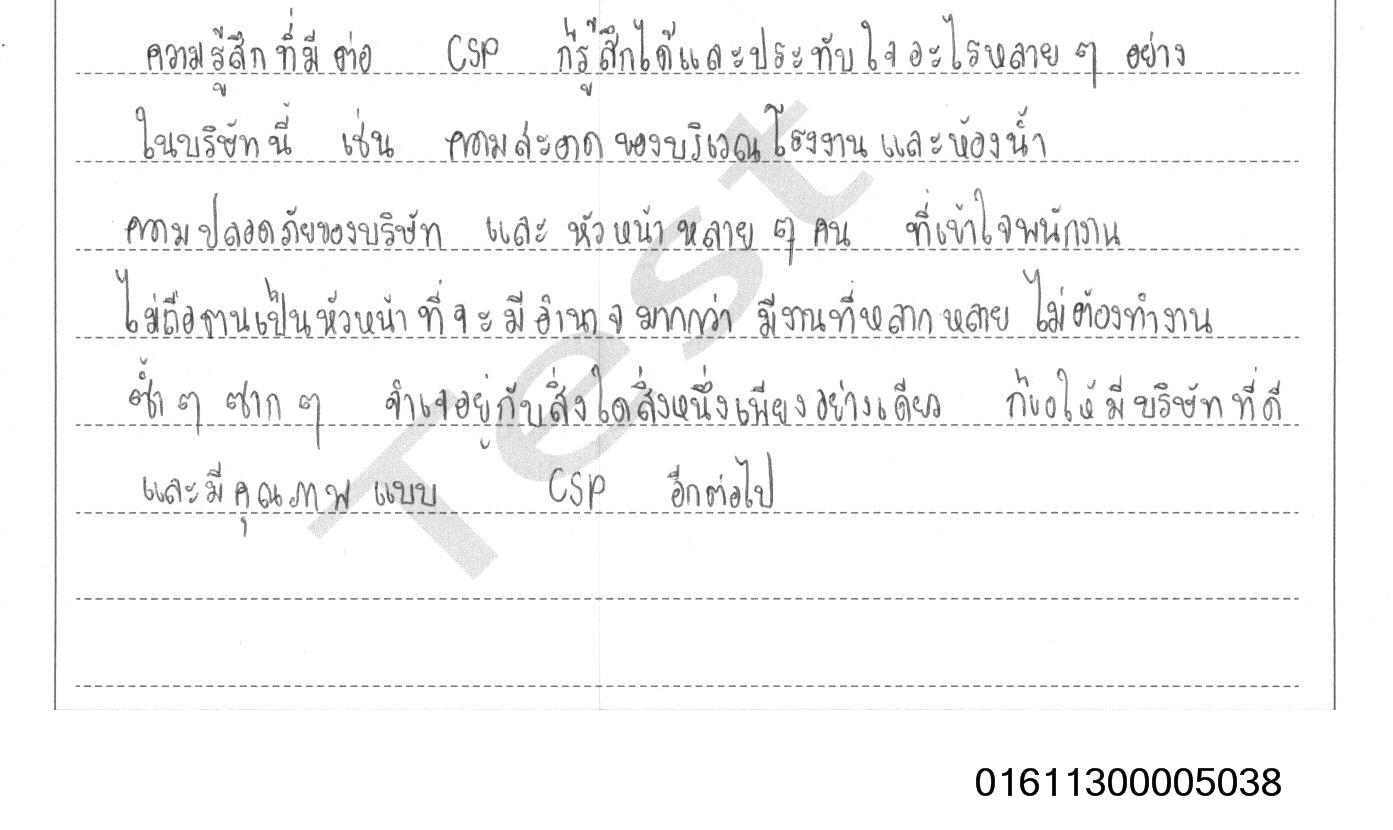 ความรู้สึกที่มี ต่อ CSP ก็รู้สึกได้และประทับใจอะไรหลาย ๆ อย่าง
ในบริษัทนี้ เช่น ความสะอาด ของบริเวณโรงงาน และห้องน้ำ
ความปลอดภัยของบริษัท และ หัวหน้า หลาย ๆ คน ที่เข้าใจพนักงาน
ไม่ถือตนเป็นหัวหน้า ที่จะมีอำนาจ มากกว่า มีงานที่หลากหลาย ไม่ต้องทำงาน
ซ้ำ ๆ ซาก ๆ จำเจอยู่กับสิ่งใดสิ่งหนึ่งเพียงอย่างเดียว ก็ขอให้ มีบริษัทที่ดี
และมีคุณภาพ แบบ CSP อีกต่อไป
Test
01611300005038